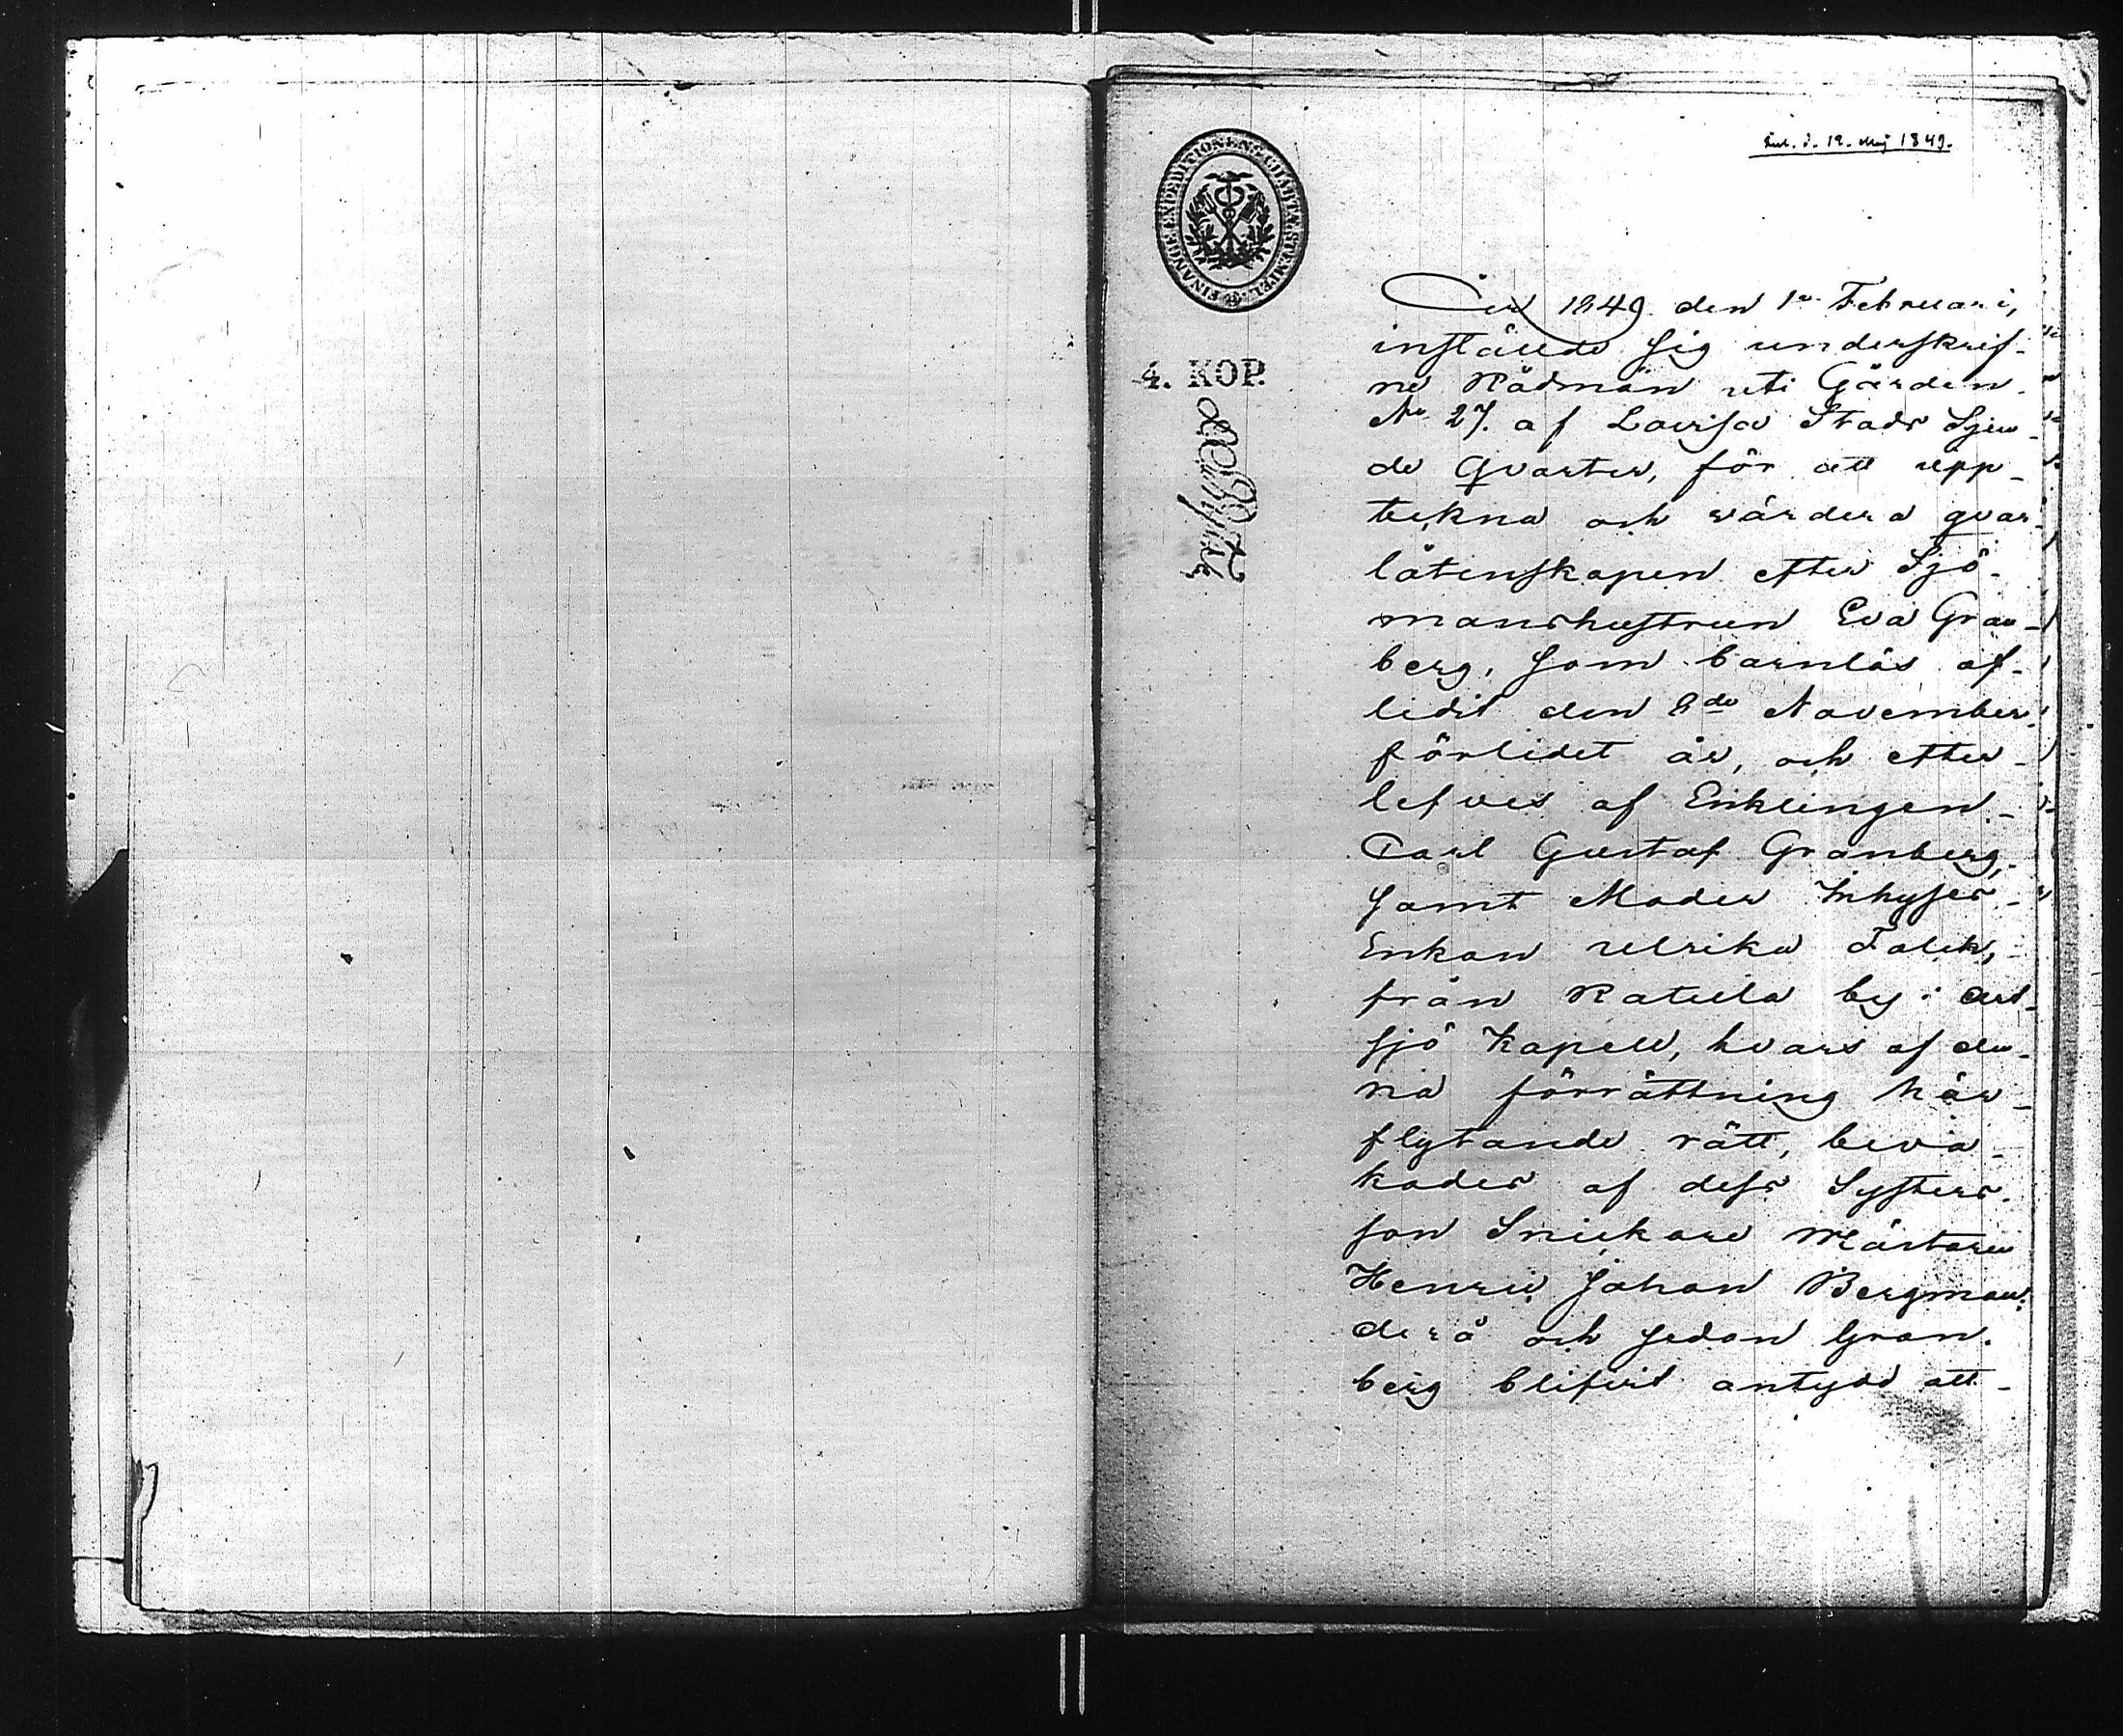 Inl. d. 12. Maj 1849.
FINANCE EXPEDITIONENS CHARTÆ STEMPEL.
4. KOP.
År 1849 den 1a Februari,
instälde sig underskrif-
ne Rådmän uti Gården
No 27. af Lovisa Stads Sjun-
de Qvarter, för att upp-
tekna och värdera qvar-
låtenskapen efter Sjö-
manshustrun Eva Gran-
berg, som barnlös af-
lidit den 8de November
förlidet år, och efter-
lefves af Enklingen
Carl Gustaf Granberg,
samt Moder Inhyses
Enkan Ulrika Falck,
från Ratula by i Art-
sjö Kapell, hvars af den-
na förrättning här-
flytande rätt, beva-
kades af dess Systers-
son Snickare Mästaren
Henric Johan Bergman;
derå och sedan Gran-
berg blifvit antydd att